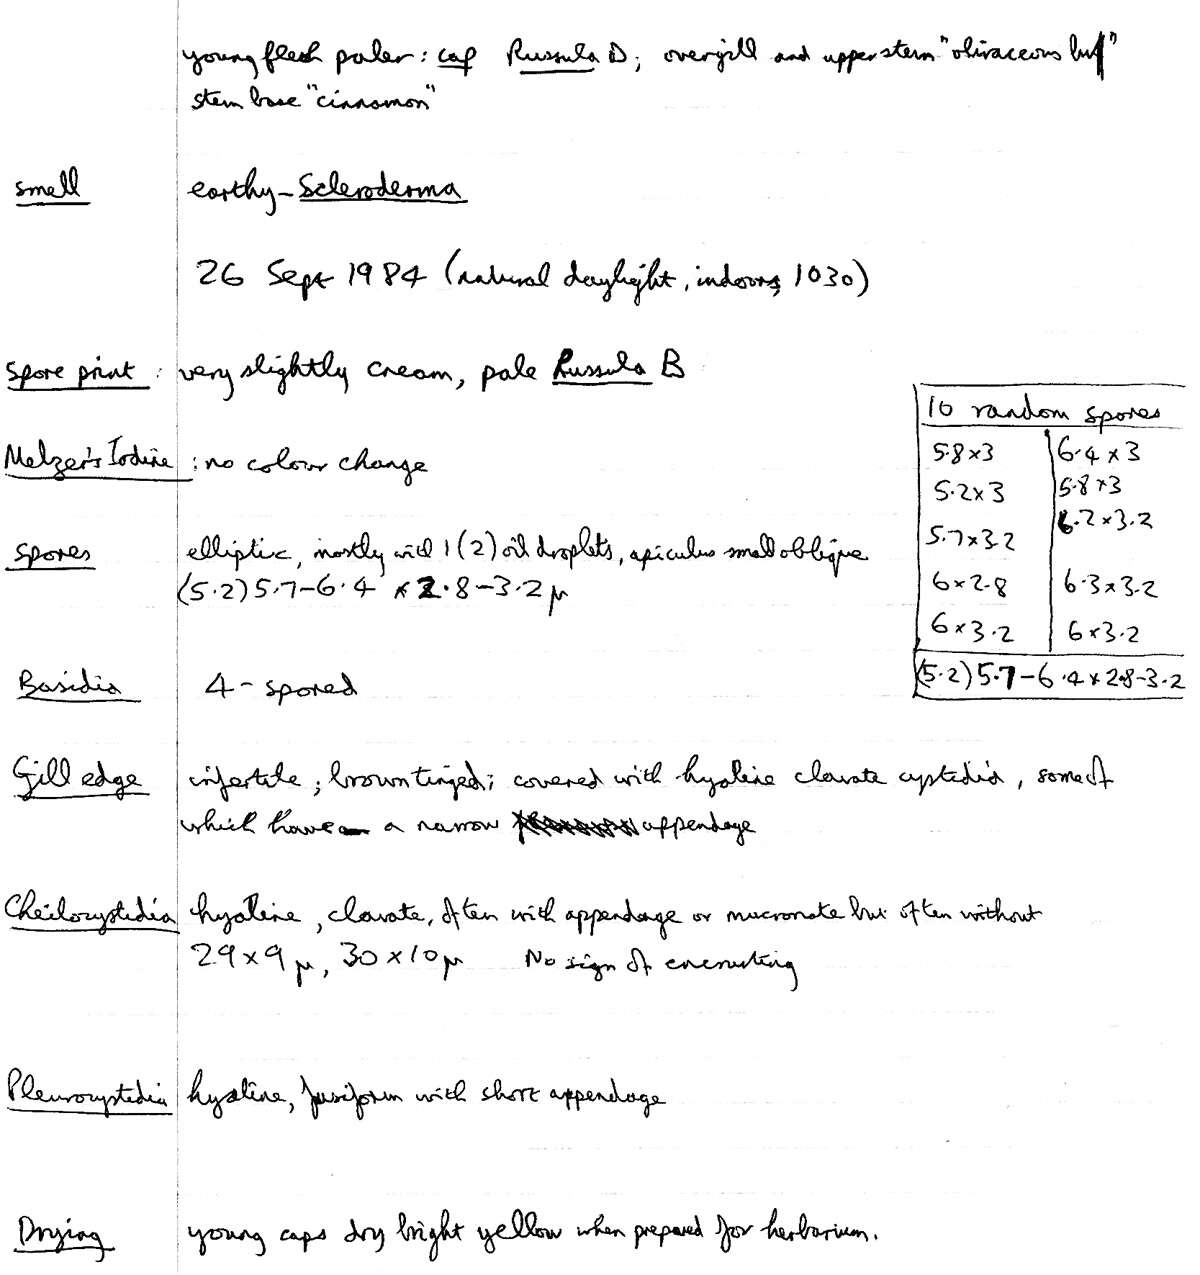 young flesh paler: cap Russula D; overgill and upper stem "olivaceous buff"
stem base "cinnamon"
smell earthy-Scleroderma
26 Sept 1984 (natural daylight, indoors, 1030)
Spore print: very slightly cream, pale Russula B
Melzer's Iodine: no colour change
10 random spores
5.8×3 6.4×3
5.2×3 5.8×3
5.7×3.2 6.2×3.2
6×2.8 6.3×3.2
6×3.2 6×3.2
(5.2)5.7-6.4×2.8-3.2
spores elliptic, mostly with 1(2) oil droplets, apiculus small oblique
(5.2)5.7-6.4 × 2.8-3.2 μ
Basidia 4-spored
Gill edge infertile; brown tinged; covered with hyaline clavate cystidia, some of
which have a narrow appendage
Cheilocystidia hyaline, clavate, often with appendage or mucronate but often without
29×9 μ, 30×10 μ No sign of encrusting
Pleurocystidia hyaline, fusiform with short appendage
Drying young caps dry bright yellow when prepared for herbarium.